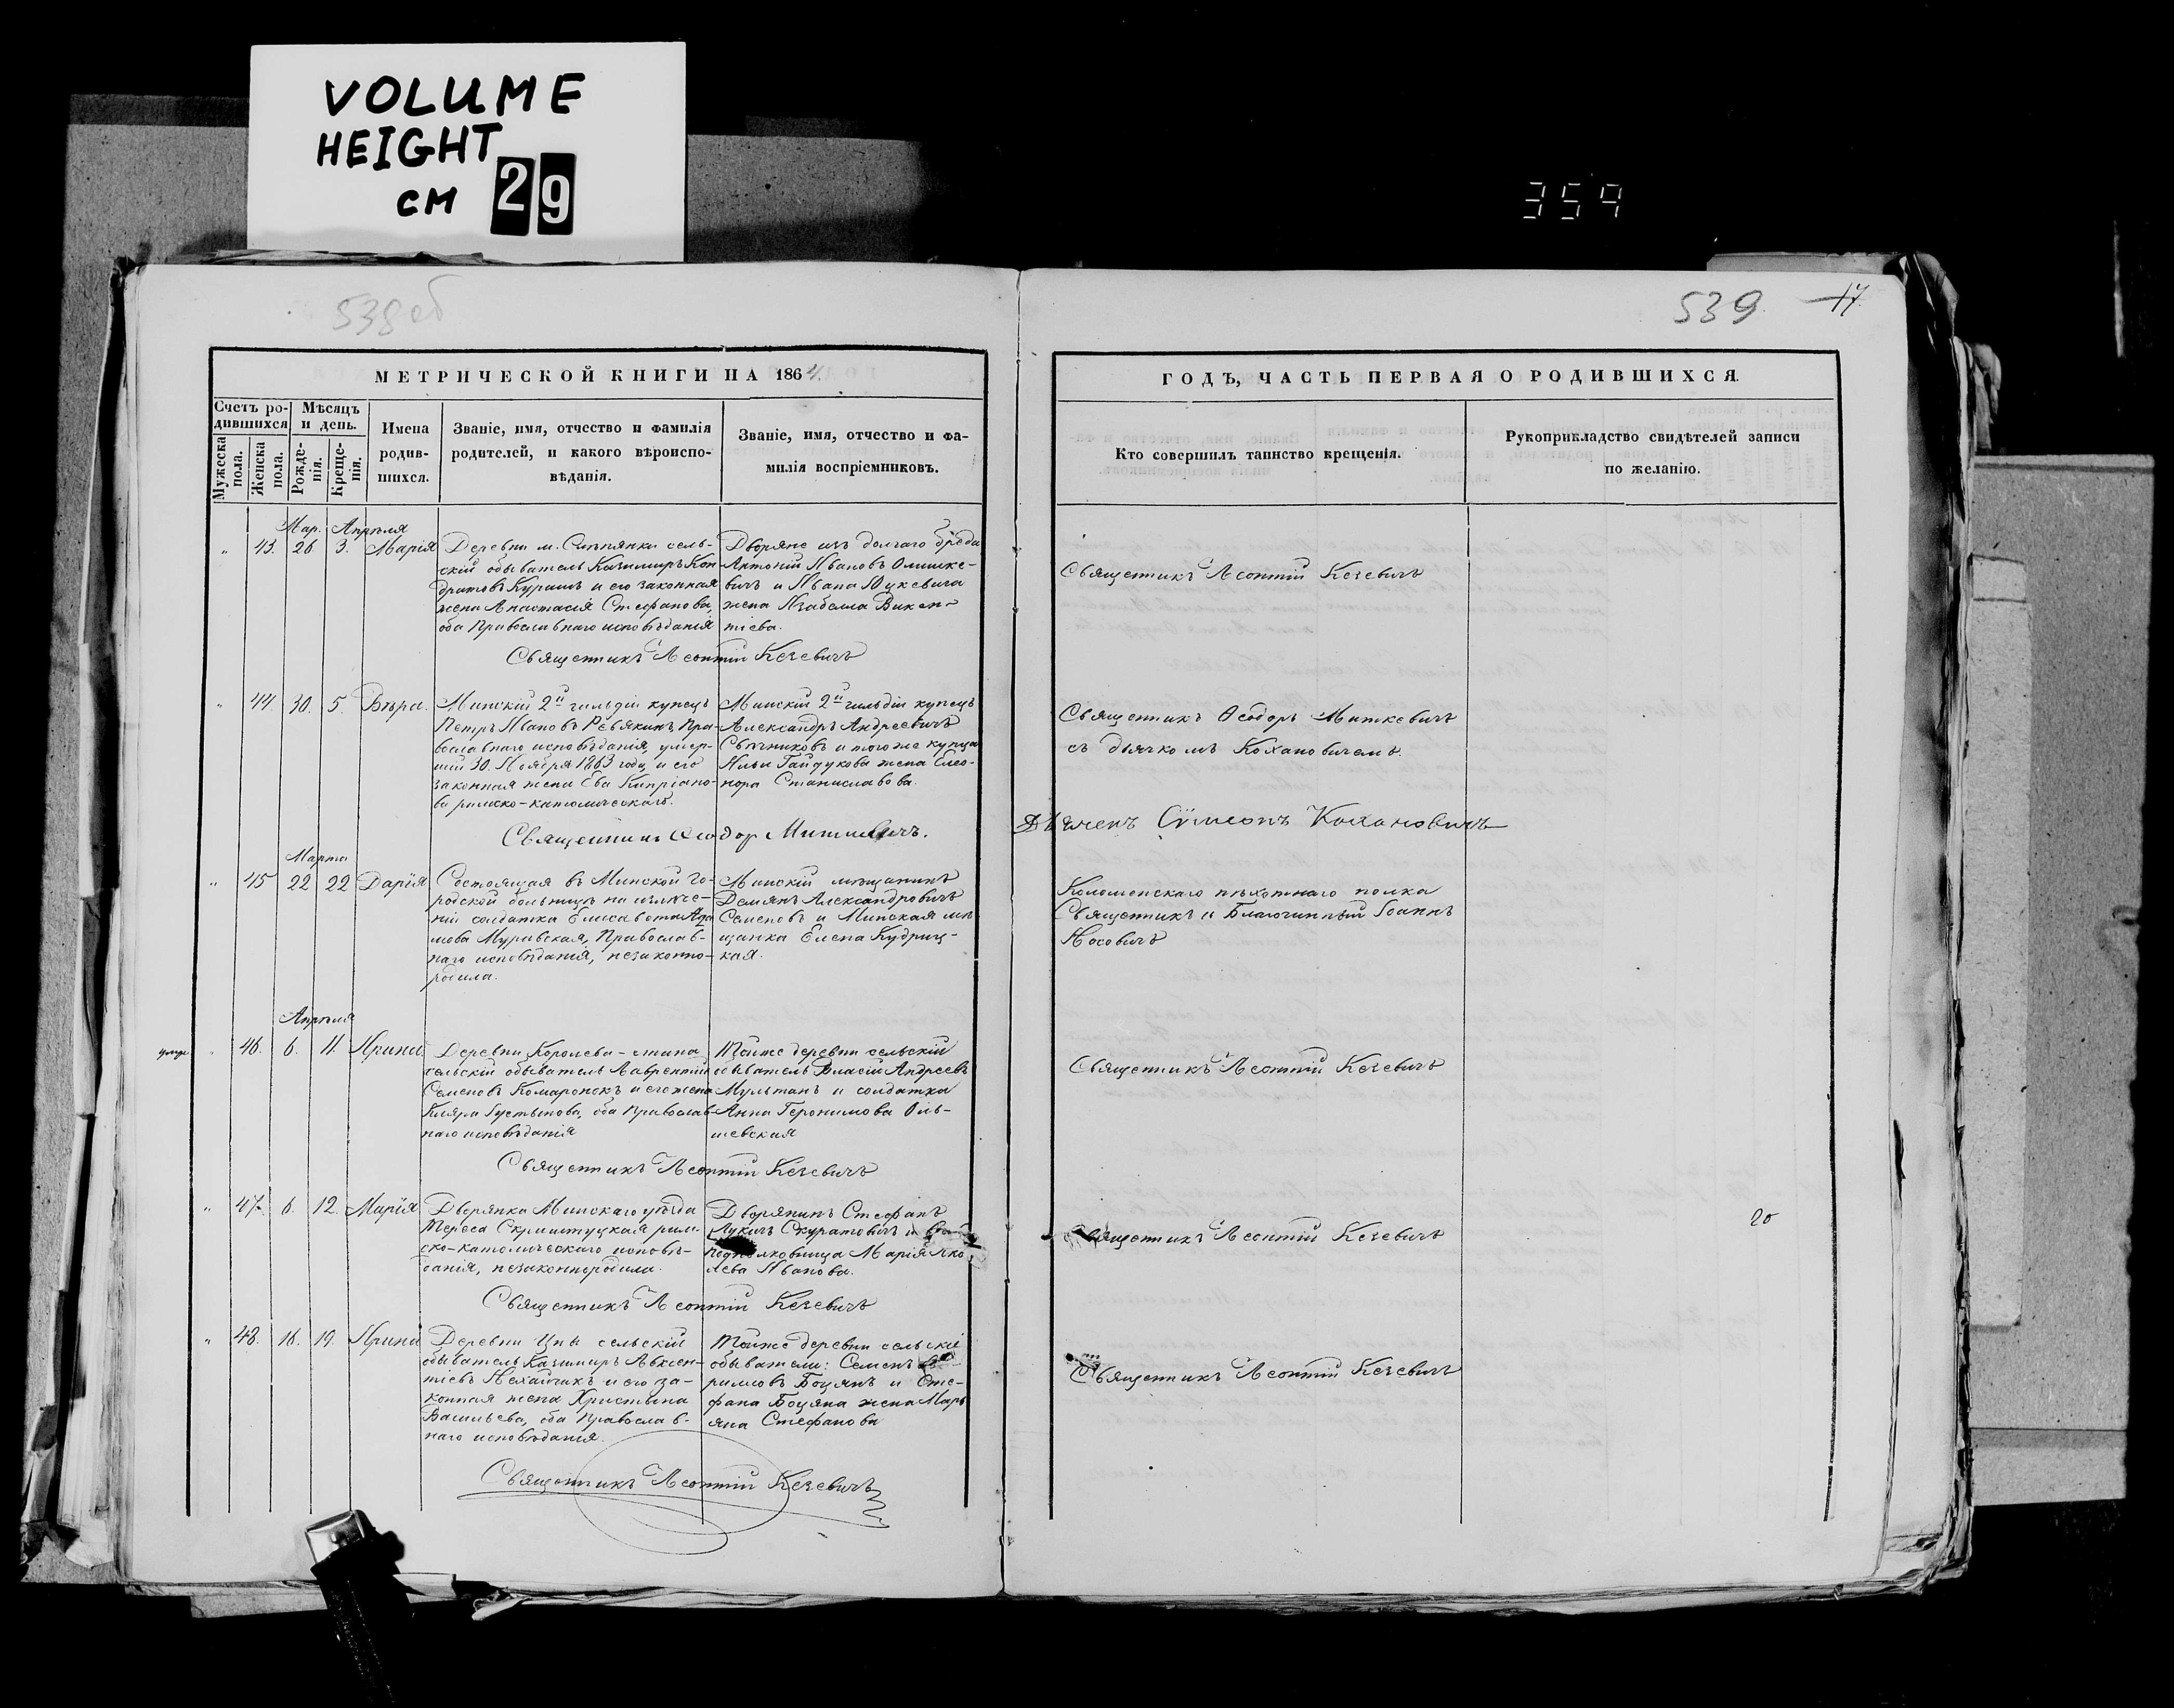 VOLUME
HEIGHT
CM 29
359
538 об
539 17.
МЕТРИЧЕСКОЙ КНИГИ НА 1864.
ГОДЪ, ЧАСТЬ ПЕРВАЯ О РОДИВШИХСЯ.
Счетъ ро-
дившихся
Мужеска пола.
Женска пола.
Мѣсяцъ
и день.
Рожде-
нія.
Креще-
нія.
Имена
родив-
шихся.
Званіе, имя, отчество и фамилія
родителей, и какого вѣроиспо-
вѣданія.
Званіе, имя, отчество и фа-
милія воспріемниковъ.
Кто совершилъ таинство крещенія.
Рукоприкладство свидѣтелей записи
по желанію.
Мар. Апрѣля
" 43. 26 3. Марія
Деревни м. Слѣпянки сель-
скій обыватель Казимиръ Кон-
дратовъ Курашъ и его законная
жена Анастасія Стефанова,
оба Православнаго исповѣданія
Дворяне изъ долгаго броду
Антоній Ивановъ Олишке-
вичъ и Ивана Юцкевича
жена Изабелла Викен-
тіева.
Священникъ Леонтій Кезевичъ
Священникъ Леонтій Кезевичъ
" 44 30. 5. Вѣра.
Минскій 2й гильдіи купецъ
Петръ Ивановъ Ревякинъ, Пра-
вославнаго исповѣданія, умер-
шій 30. Ноября 1863 года, и его
законная жена Ева Кипріано-
ва римско-католическаго.
Минскій 2й гильдіи купецъ
Александръ Андреевичъ
Свѣчниковъ и того же купца
Ильи Гайдукова жена Элео-
нора Станиславова.
Священникъ Ѳеодоръ Миткевичъ
съ дьячкомъ Кохановичемъ.
Священникъ Ѳеодоръ Миткевичъ.
Дьячекъ Сѵмеонъ Кохановичъ
Марта
" 45 22 22 Дарія
Состоящая въ Минской го-
родской больницѣ на излече-
ніи солдатка Елисавета Ада-
мова Муравская, Православ-
наго исповѣданія, незаконно-
родила.
Минскій мѣщанинъ
Демянъ Александровичъ
Семеновъ и Минская мѣ-
щанка Елена Кудриц-
кая.
Коломенскаго пѣхотнаго полка
Священникъ и Благочинный Іоаннъ
Носовичъ
Апрѣля
" 46. 6. 11. Ирина
Деревни Королева-стана
сельскій обыватель Лаврентій
Семеновъ Комаронокъ и его жена
Кляра Іустынова, оба Православ-
наго исповѣданія
Тойже деревни сельскій
обыватель Власій Андреевъ
Мультанъ и солдатка
Анна Геронимова Оль-
шевская
Священникъ Леонтій Кезевичъ
Священникъ Леонтій Кезевичъ
" 47. 6. 12. Марія
Дворянка Минскаго уѣзда
Тереса римс-
ко-католическаго исповѣ-
данія, незаконнородила.
Дворянинъ Стефанъ
Лукичъ Скуратовичъ и
подполковница Марія Яко-
лева Иванова.
Священникъ Леонтій Кезевичъ
20
Священникъ Леонтій Кезевичъ
" 48. 16. 19. Ирина
Деревни Цны сельскій
обыватель Казимиръ Авксен-
тіевъ Нехайчикъ и его за-
конная жена Христина
Васильева, оба Православ-
наго исповѣданія.
Тойже деревни сельскіе
обыватели: Семенъ
римовъ Боцянъ и Сте-
фана Боцяна жена Марь-
яна Стефанова
Священникъ Леонтій Кезевичъ
Священникъ Леонтій Кезевичъ